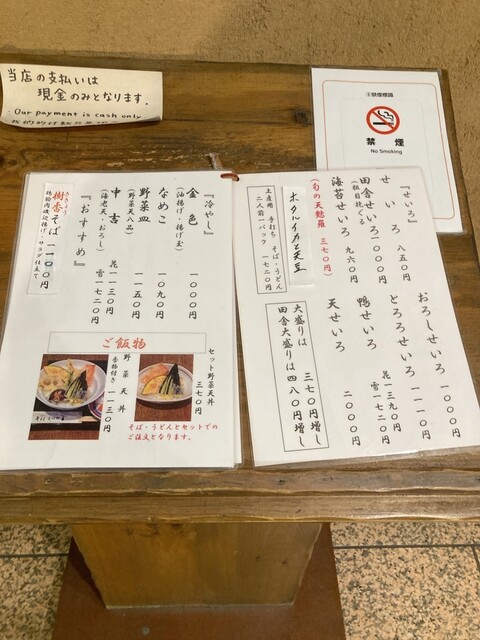 当店の支払いは
現金のみとなります.
. Our payment is cash only
禁煙標識
禁煙
No Smoking
『せいろ』
せいろ 八五〇円
田舎せいろ
海苔せいろ 九六〇円
(旬の天麩羅 三七〇円)
ホタルイカと天豆
土産用 手打ち そば・うどん
二人前一パック 一七二〇円
おろしせいろ 一〇〇〇円
とろろせいろ 一一一〇円
鴨せいろ
花一三九〇円
雪一七二〇円
天せいろ
二〇〇〇円
大盛りは 三七〇円増し
田舎大盛りは四八〇円増し
『冷やし』
金色 一〇〇〇円
(油揚げ・揚げ玉)
なめこ 一〇九〇円
野菜皿 一一五〇円
(野菜天八品)
中吉 花一一三〇円
(海老天・おろし) 雪一七二〇円
『おすすめ』
樹香そば 一一〇〇円
ご飯物
セット野菜天丼
三七〇円
野菜天丼
香物付き 一一三〇円
そば・うどんとセットでの
ご注文となります。